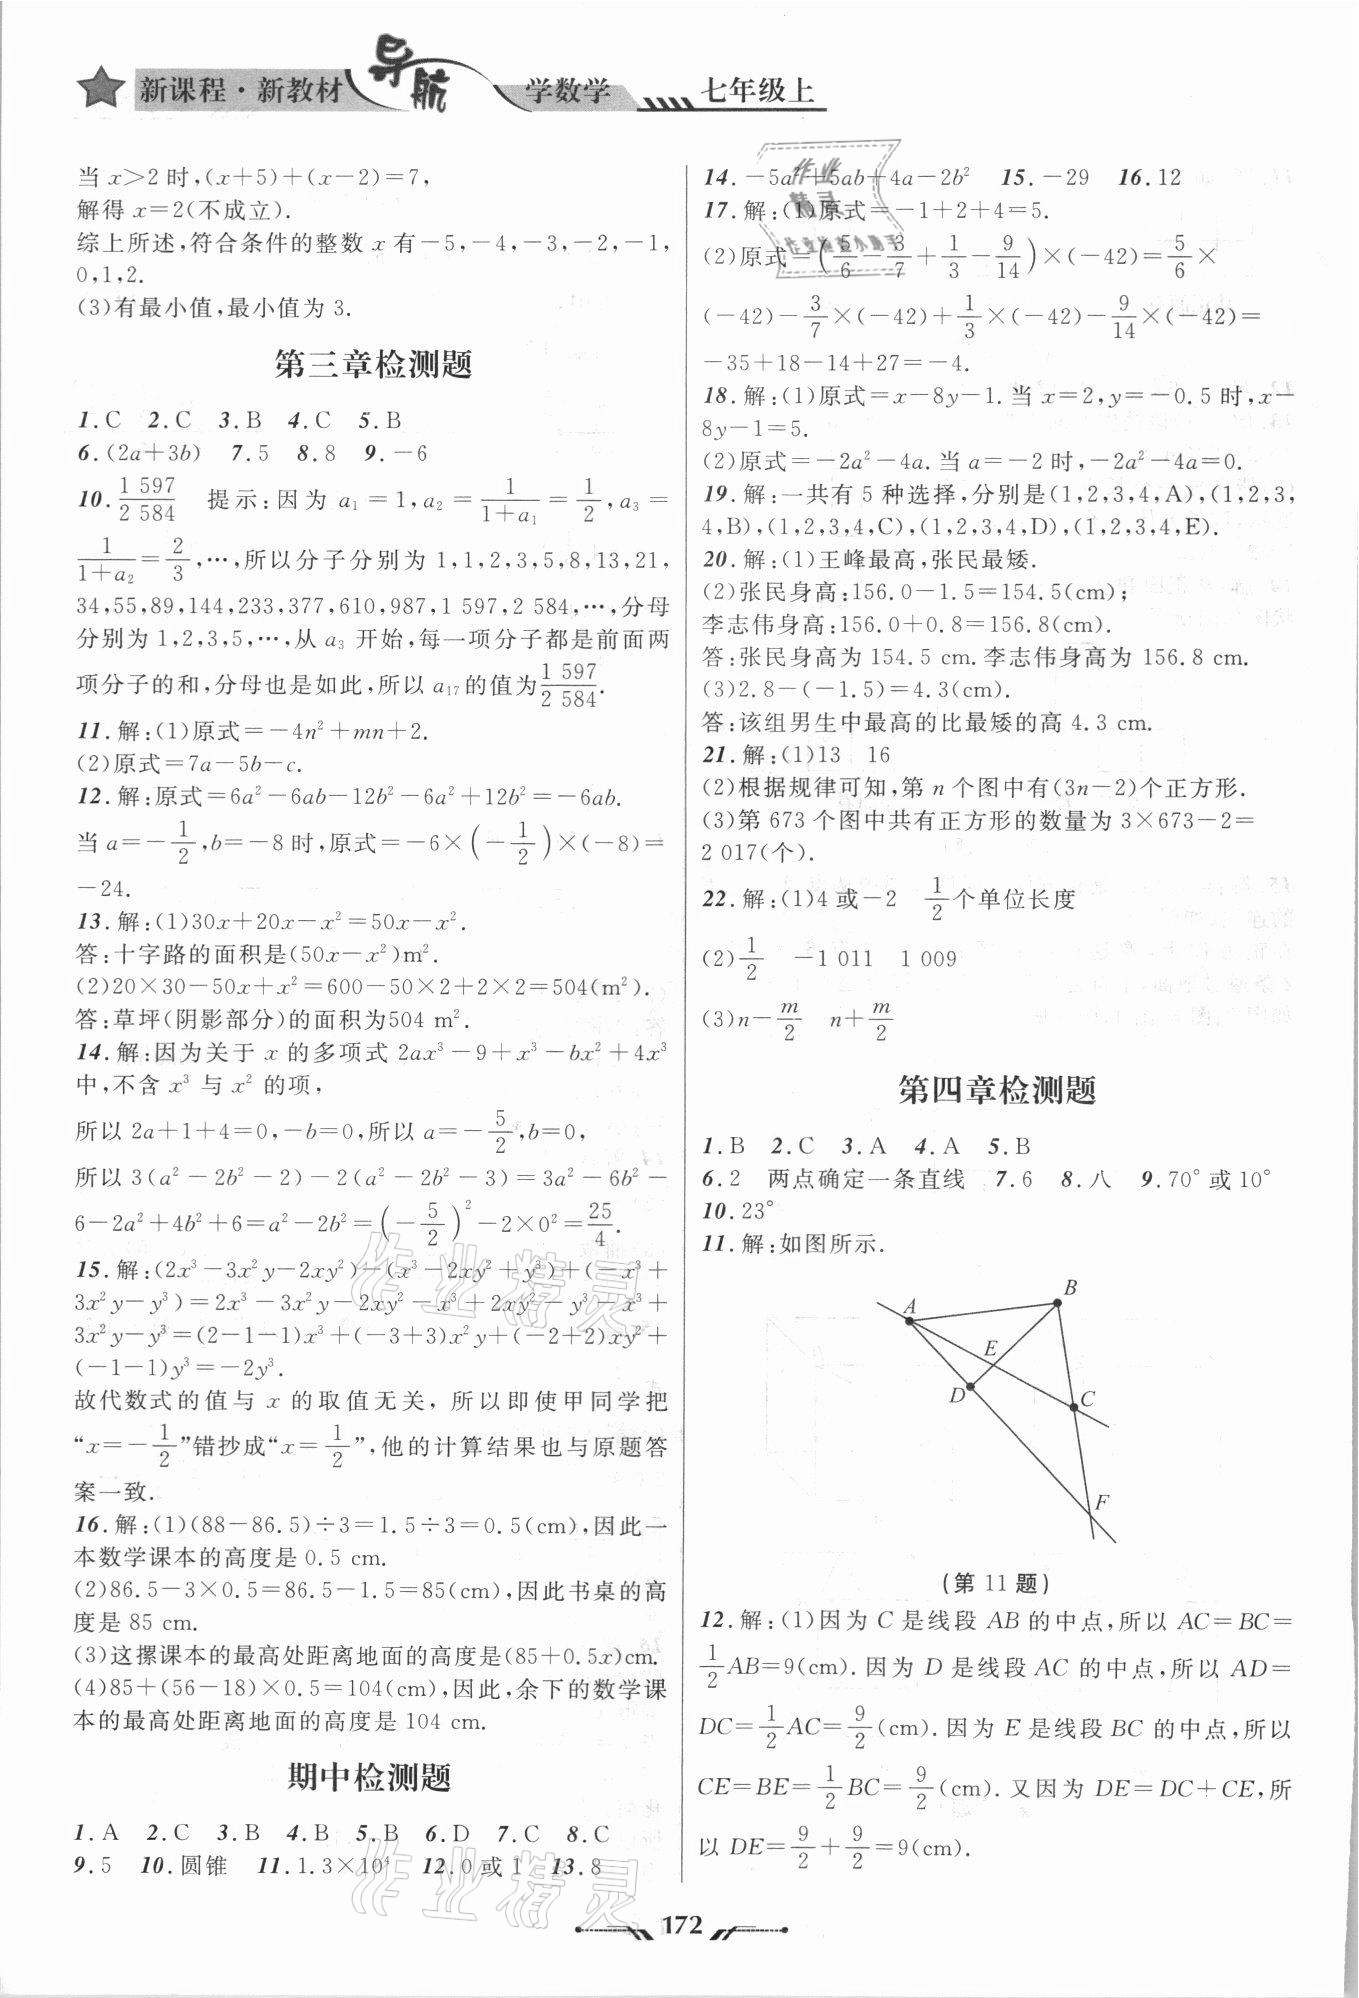 新课程·新教材 导航 学数学 七年级上
当 x>2 时,(x+5)+(x-2)=7,
解得 x=2(不成立).
综上所述,符合条件的整数 x 有-5,-4,-3,-2,-1,
0,1,2.
(3)有最小值,最小值为 3.
第三章检测题
1.C 2.C 3.B 4.C 5.B
6.(2a+3b) 7.5 8.8 9.-6
10. 1 597/2 584 提示:因为 a₁=1,a₂=1/(1+a₁)=1/2,a₃=
1/(1+a₂)=2/3,…,所以分子分别为 1,1,2,3,5,8,13,21,
34,55,89,144,233,377,610,987,1 597,2 584,…,分母
分别为 1,2,3,5,…,从 a₃ 开始,每一项分子都是前面两
项分子的和,分母也是如此,所以 a₁₇的值为1 597/2 584.
11.解:(1)原式=-4n²+mn+2.
(2)原式=7a-5b-c.
12.解:原式=6a²-6ab-12b²-6a²+12b²=-6ab.
当 a=-1/2,b=-8 时,原式=-6×(-1/2)×(-8)=
-24.
13.解:(1)30x+20x-x²=50x-x².
答:十字路的面积是(50x-x²)m².
(2)20×30-50x+x²=600-50×2+2×2=504(m²).
答:草坪(阴影部分)的面积为504 m².
14.解:因为关于 x 的多项式 2ax³-9+x³-bx²+4x³
中,不含 x³ 与 x² 的项,
所以 2a+1+4=0,-b=0,所以 a=-5/2,b=0,
所以 3(a²-2b²-2)-2(a²-2b²-3)=3a²-6b²-
6-2a²+4b²+6=a²-2b²=(-5/2)²-2×0²=25/4.
15.解:(2x³-3x²y-2xy²)-(x³-2xy²+y³)+(-x³+
3x²y-y³)=2x³-3x²y-2xy²-x³+2xy²-y³-x³+
3x²y-y³=(2-1-1)x³+(-3+3)x²y+(-2+2)xy²+
(-1-1)y³=-2y³.
故代数式的值与 x 的取值无关, 所以即使甲同学把
“x=-1/2”错抄成“x=1/2”,他的计算结果也与原题答
案一致.
16.解:(1)(88-86.5)÷3=1.5÷3=0.5(cm),因此一
本数学课本的高度是 0.5 cm.
(2)86.5-3×0.5=86.5-1.5=85(cm),因此书桌的高
度是 85 cm.
(3)这摞课本的最高处距离地面的高度是(85+0.5x)cm.
(4)85+(56-18)×0.5=104(cm),因此,余下的数学课
本的最高处距离地面的高度是 104 cm.
期中检测题
1.A 2.C 3.B 4.B 5.B 6.D 7.C 8.C
9.5 10.圆锥 11.1.3×10⁴ 12.0 或 1 13.8
14.-5a²+5ab+4a-2b² 15.-29 16.12
17.解:(1)原式=-1+2+4=5.
(2)原式=(5/6-3/7+1/3-9/14)×(-42)=5/6×
(-42)-3/7×(-42)+1/3×(-42)-9/14×(-42)=
-35+18-14+27=-4.
18.解:(1)原式=x-8y-1.当 x=2,y=-0.5 时,x-
8y-1=5.
(2)原式=-2a²-4a.当 a=-2 时,-2a²-4a=0.
19.解:一共有 5 种选择,分别是(1,2,3,4,A),(1,2,3,
4,B),(1,2,3,4,C),(1,2,3,4,D),(1,2,3,4,E).
20.解:(1)王峰最高,张民最矮.
(2)张民身高:156.0-1.5=154.5(cm);
李志伟身高:156.0+0.8=156.8(cm).
答:张民身高为 154.5 cm.李志伟身高为 156.8 cm.
(3)2.8-(-1.5)=4.3(cm).
答:该组男生中最高的比最矮的高 4.3 cm.
21.解:(1)13 16
(2)根据规律可知,第 n 个图中有(3n-2)个正方形.
(3)第 673 个图中共有正方形的数量为 3×673-2=
2 017(个).
22.解:(1)4 或-2 1/2个单位长度
(2)1/2 -1 011 1 009
(3)n-m/2 n+m/2
第四章检测题
1.B 2.C 3.A 4.A 5.B
6.2 两点确定一条直线 7.6 8.八 9.70°或10°
10.23°
11.解:如图所示.
A
B
E
D
C
F
(第 11 题)
12.解:(1)因为 C 是线段 AB 的中点,所以 AC=BC=
1/2AB=9(cm).因为 D 是线段 AC 的中点,所以 AD=
DC=1/2AC=9/2(cm).因为 E 是线段 BC 的中点,所以
CE=BE=1/2BC=9/2(cm).又因为 DE=DC+CE,所
以 DE=9/2+9/2=9(cm).
172
作业精灵
作业精灵
作业
精灵